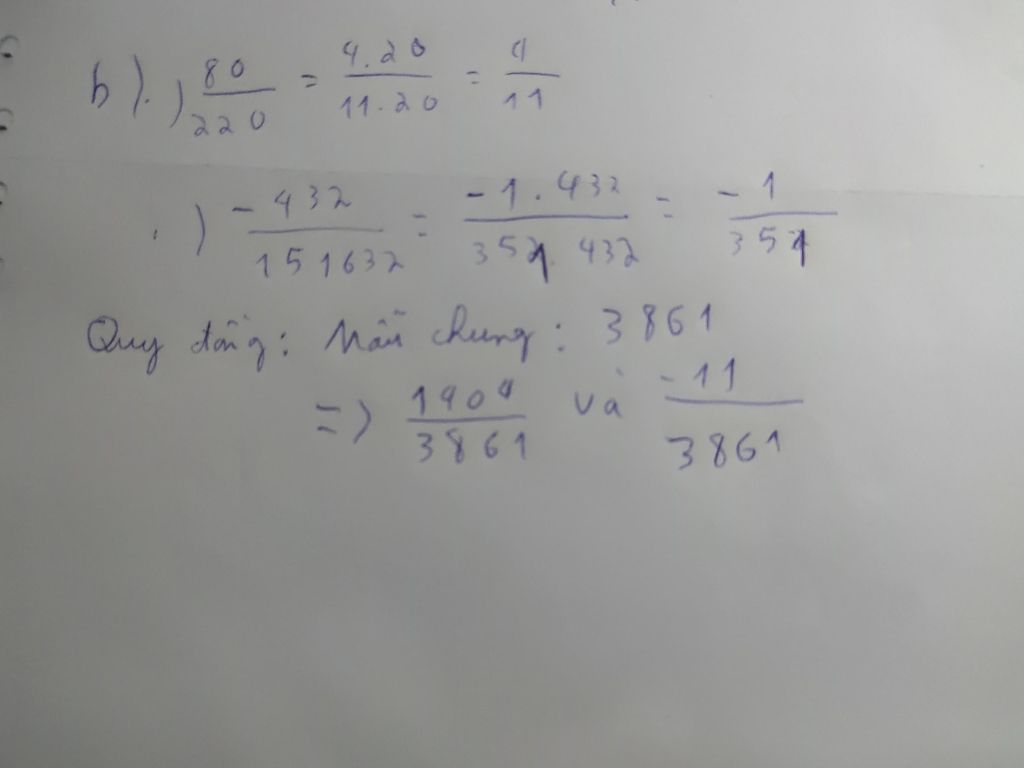 b) .) 80/220 = 4.20/11.20 = 4/11
.) -432/151632 = -1.432/351.432 = -1/351
Quy đồng: Mẫu chung: 3861
=> 1404/3861 và -11/3861